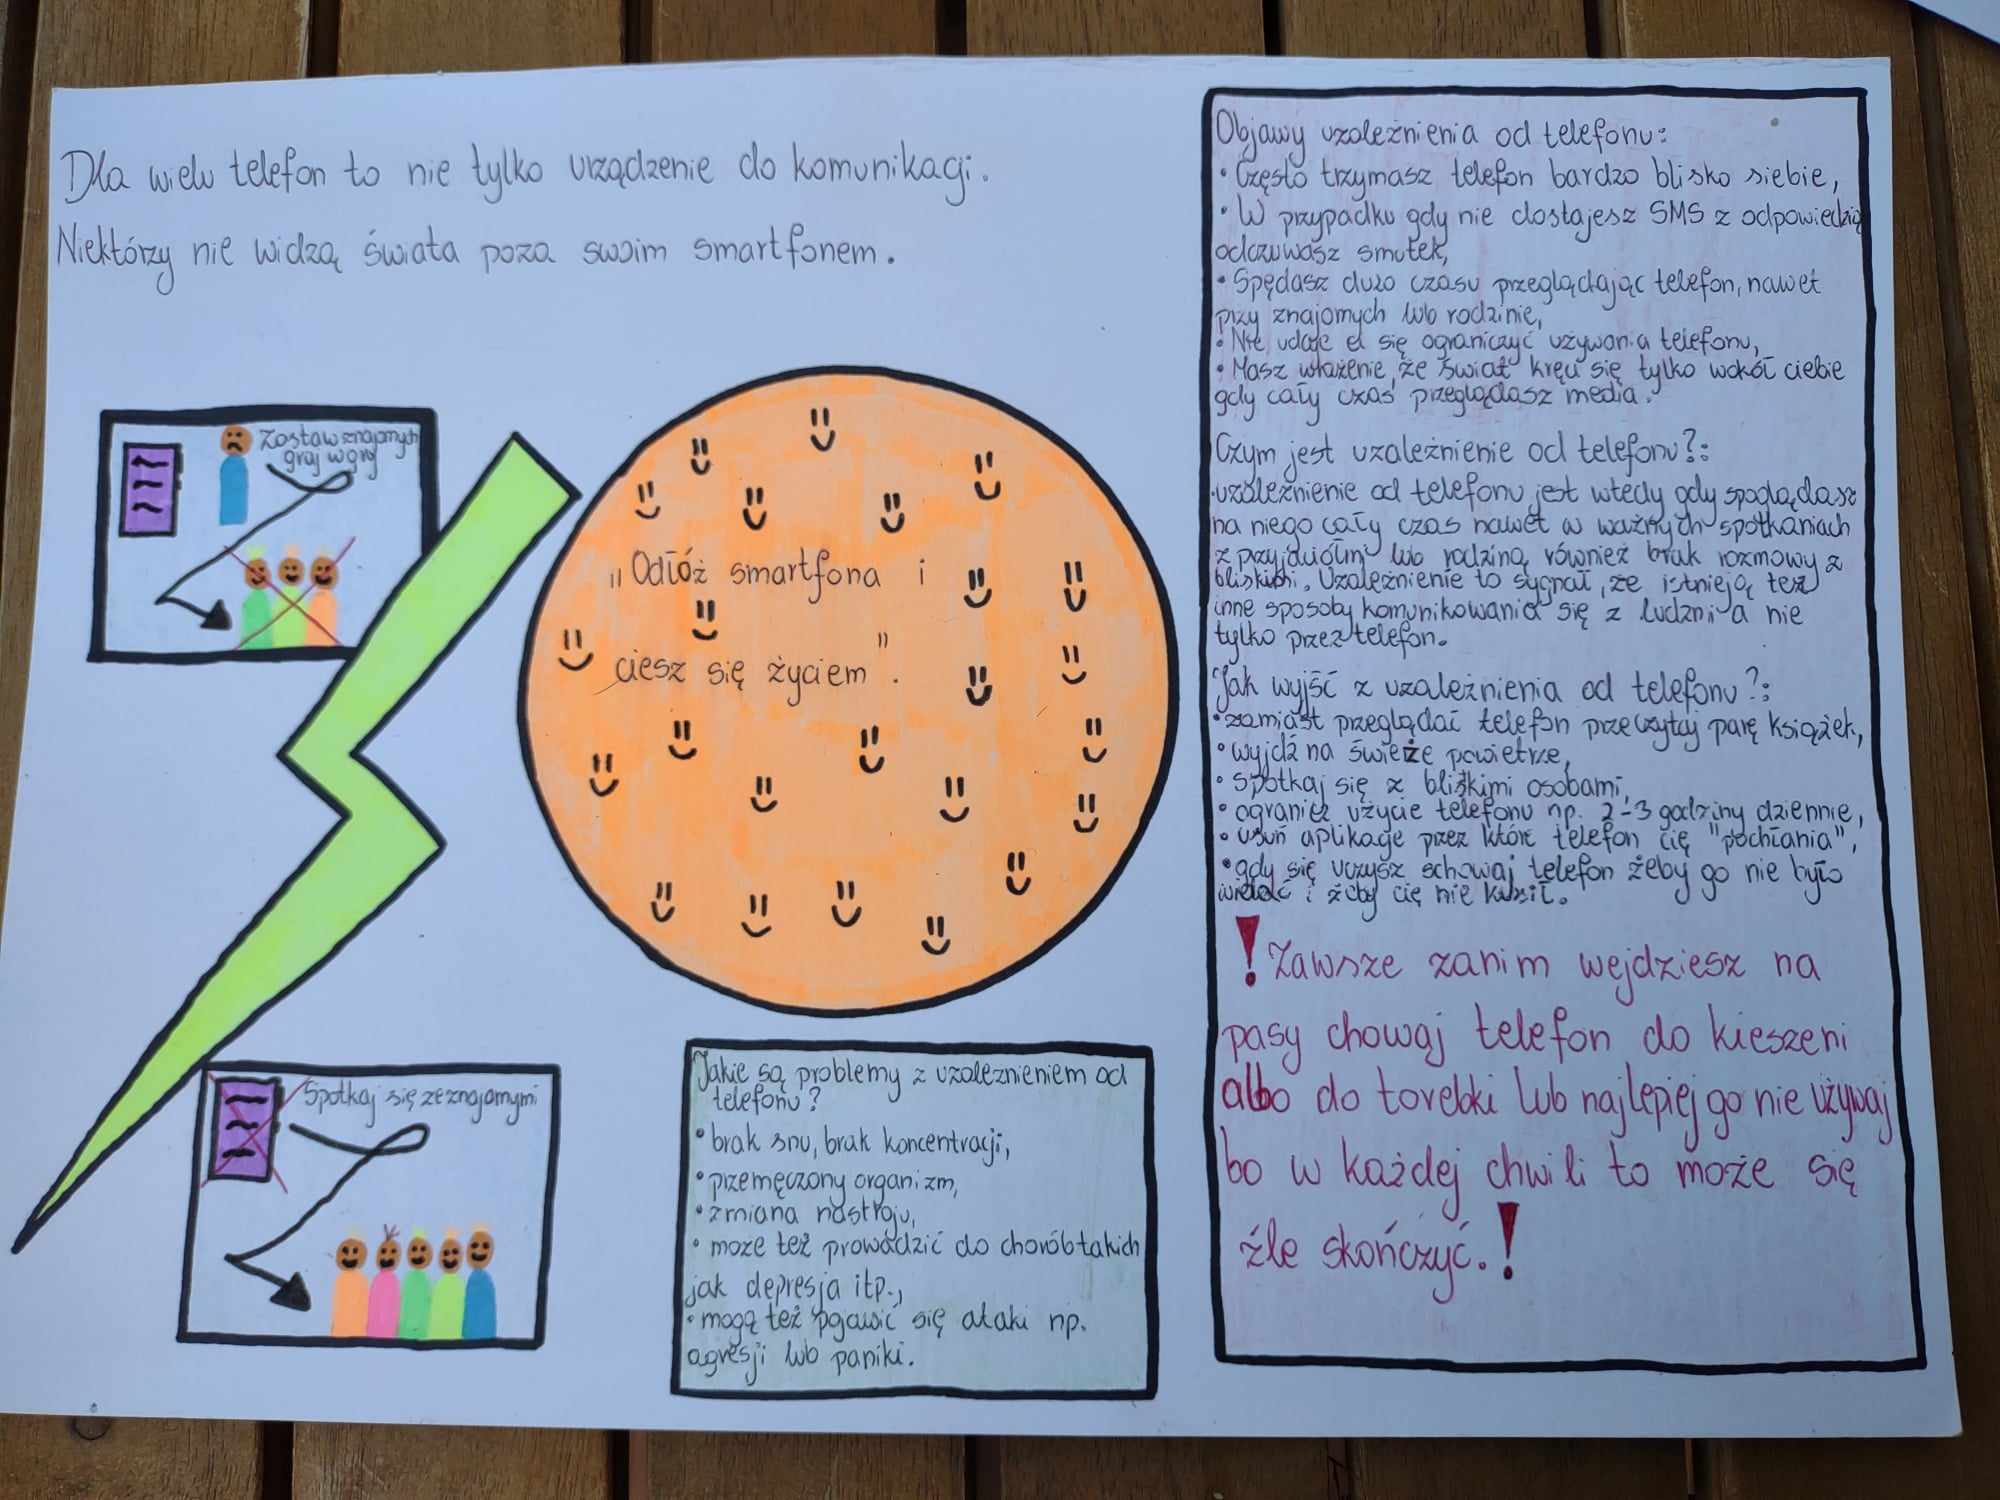 Dla wielu telefon to nie tylko urządzenie do komunikacji.
Niektórzy nie widzą świata poza swoim smartfonem.
Zostaw znajomych
graj w gry
„Odłóż smartfona i
ciesz się życiem”.
Spotkaj się ze znajomymi
Jakie są problemy z uzależnieniem od
telefonu?
• brak snu, brak koncentracji,
• przemęczony organizm,
• zmiana nastroju,
• może też prowadzić do chorób takich
jak depresja itp.,
• mogą też pojawić się ataki np.
agresji lub paniki.
Objawy uzależnienia od telefonu:
• Często trzymasz telefon bardzo blisko siebie,
• W przypadku gdy nie dostajesz SMS z odpowiedzią
odczuwasz smutek,
• Spędasz dużo czasu przeglądając telefon, nawet
przy znajomych lub rodzinie,
• Nie udaje ci się ograniczyć używania telefonu,
• Masz wrażenie, że świat kręci się tylko wokół ciebie
gdy cały czas przeglądasz media.
Czym jest uzależnienie od telefonu?:
• uzależnienie od telefonu jest wtedy gdy spoglądasz
na niego cały czas nawet w ważnych spotkaniach
z przyjaciółmi lub rodziną, również brak rozmowy z
bliskimi. Uzależnienie to sygnał, że istnieją też
inne sposoby komunikowania się z ludźmi a nie
tylko przez telefon.
Jak wyjść z uzależnienia od telefonu?:
• zamiast przeglądać telefon przeczytaj parę książek,
• wyjdź na świeże powietrze,
• spotkaj się z bliskimi osobami,
• ogranicz użycie telefonu np. 2-3 godziny dziennie,
• usuń aplikacje przez które telefon cię "pochłania",
• gdy się uczysz schowaj telefon żeby go nie było
widać i żeby cię nie kusił.
! Zawsze zanim wejdziesz na
pasy chowaj telefon do kieszeni
albo do torebki lub najlepiej go nie używaj
bo w każdej chwili to może się
źle skończyć. !